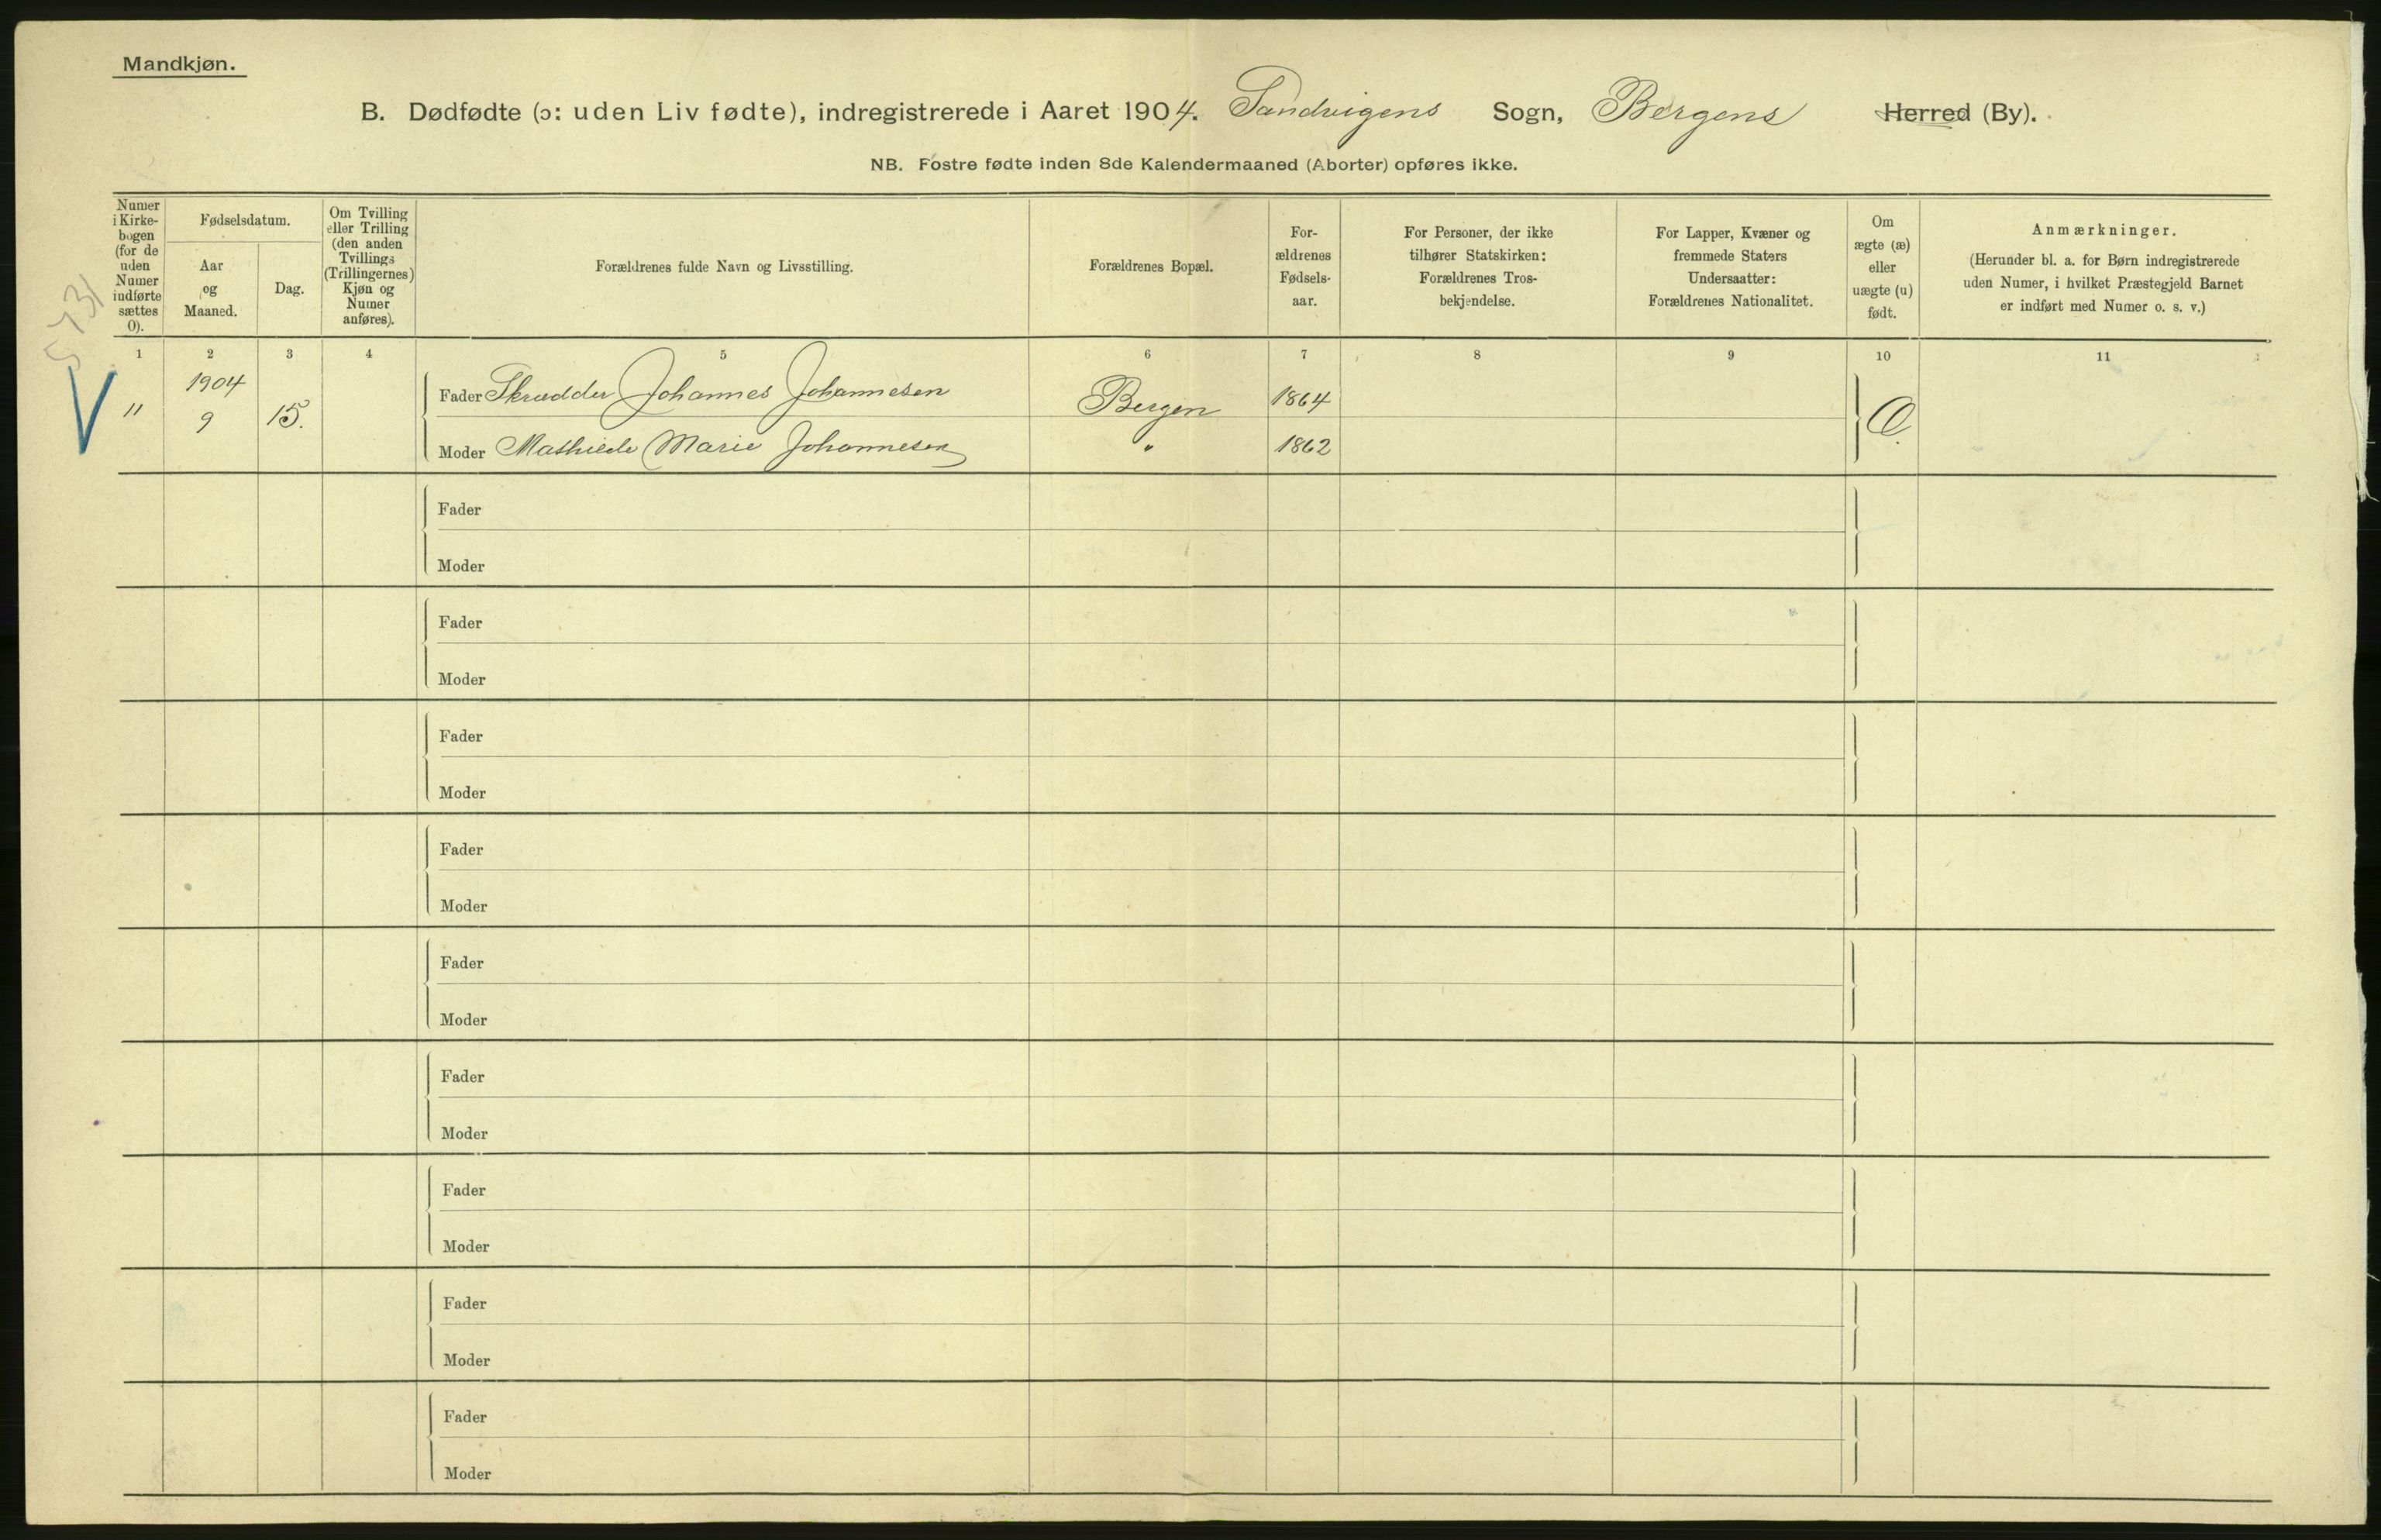 Mandkjøn.
B. Dødfødte (ɔ: uden Liv fødte), indregistrerede i Aaret 1904. Sandvigens Sogn, Bergens Herred (By).
NB. Fostre fødte inden 8de Kalendermaaned (Aborter) opføres ikke.
Numer i Kirkebogen (for de uden Numer indførte sættes 0).
Fødselsdatum.
Aar og Maaned.
Dag.
Om Tvilling eller Trilling (den anden Tvillings (Trillingernes) Kjøn og Numer anføres).
Forældrenes fulde Navn og Livsstilling.
Forældrenes Bopæl.
Forældrenes Fødselsaar.
For Personer, der ikke tilhører Statskirken: Forældrenes Trosbekjendelse.
For Lapper, Kvæner og fremmede Staters Undersaatter: Forældrenes Nationalitet.
Om ægte (æ) eller uægte (u) født.
Anmærkninger.
(Herunder bl. a. for Børn indregistrerede uden Numer, i hvilket Præstegjeld Barnet er indført med Numer o. s. v.)
1 2 3 4 5 6 7 8 9 10 11
1904
" 9 15. Fader Skrædder Johannes Johannesen Bergen 1864
Moder Mathilde Marie Johannesen " 1862
Fader
Moder
Fader
Moder
Fader
Moder
Fader
Moder
Fader
Moder
Fader
Moder
Fader
Moder
Fader
Moder
Fader
Moder